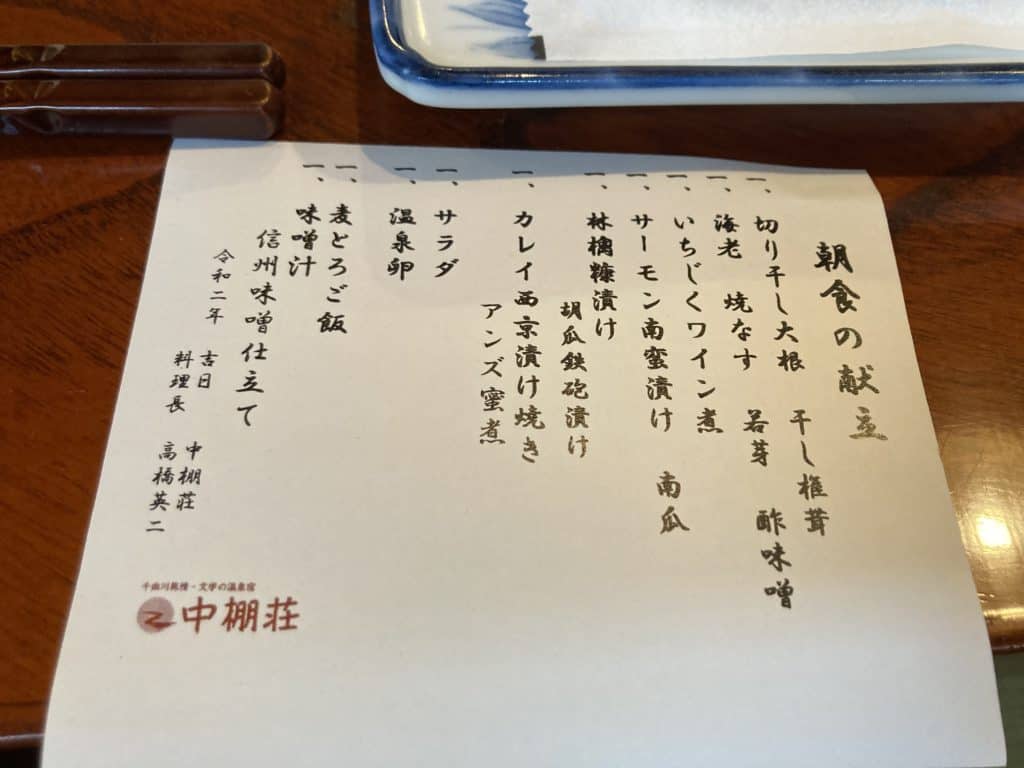 朝食の献立
一、切り干し大根 干し椎茸
一、海老 焼なす 若芽 酢味噌
一、いちじくワイン煮
一、サーモン南蛮漬け 南瓜
一、林檎糠漬け
胡瓜鉄砲漬け
一、カレイ西京漬け焼き
アンズ蜜煮
一、サラダ
一、温泉卵
一、麦とろご飯
一、味噌汁
信州味噌仕立て
令和二年 吉日 中棚荘
料理長 高橋英二
千曲川旅情・文学の温泉宿
中棚荘